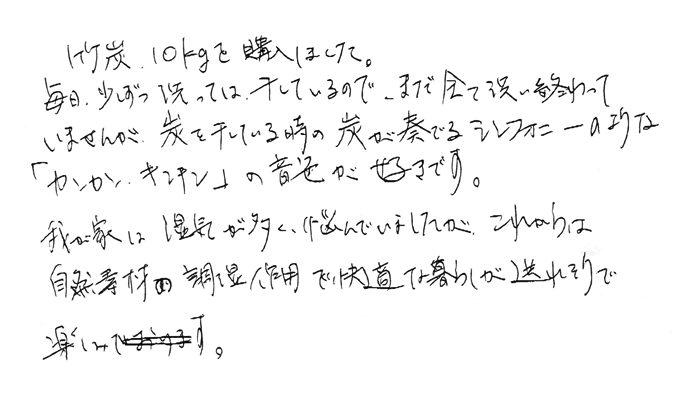 竹炭 10kgを購入しました。
毎日、少しずつ洗っては、干しているので、まだ全て洗い終わって
いませんが、炭を干している時の炭が奏でるシンフォニーの様な
「カンカン・キンキン」の音色が好きです。
我が家は湿気が多く、悩んでいましたが、これからは
自然素材の調湿作用で快適な暮らしが送れそうで
楽しみです。